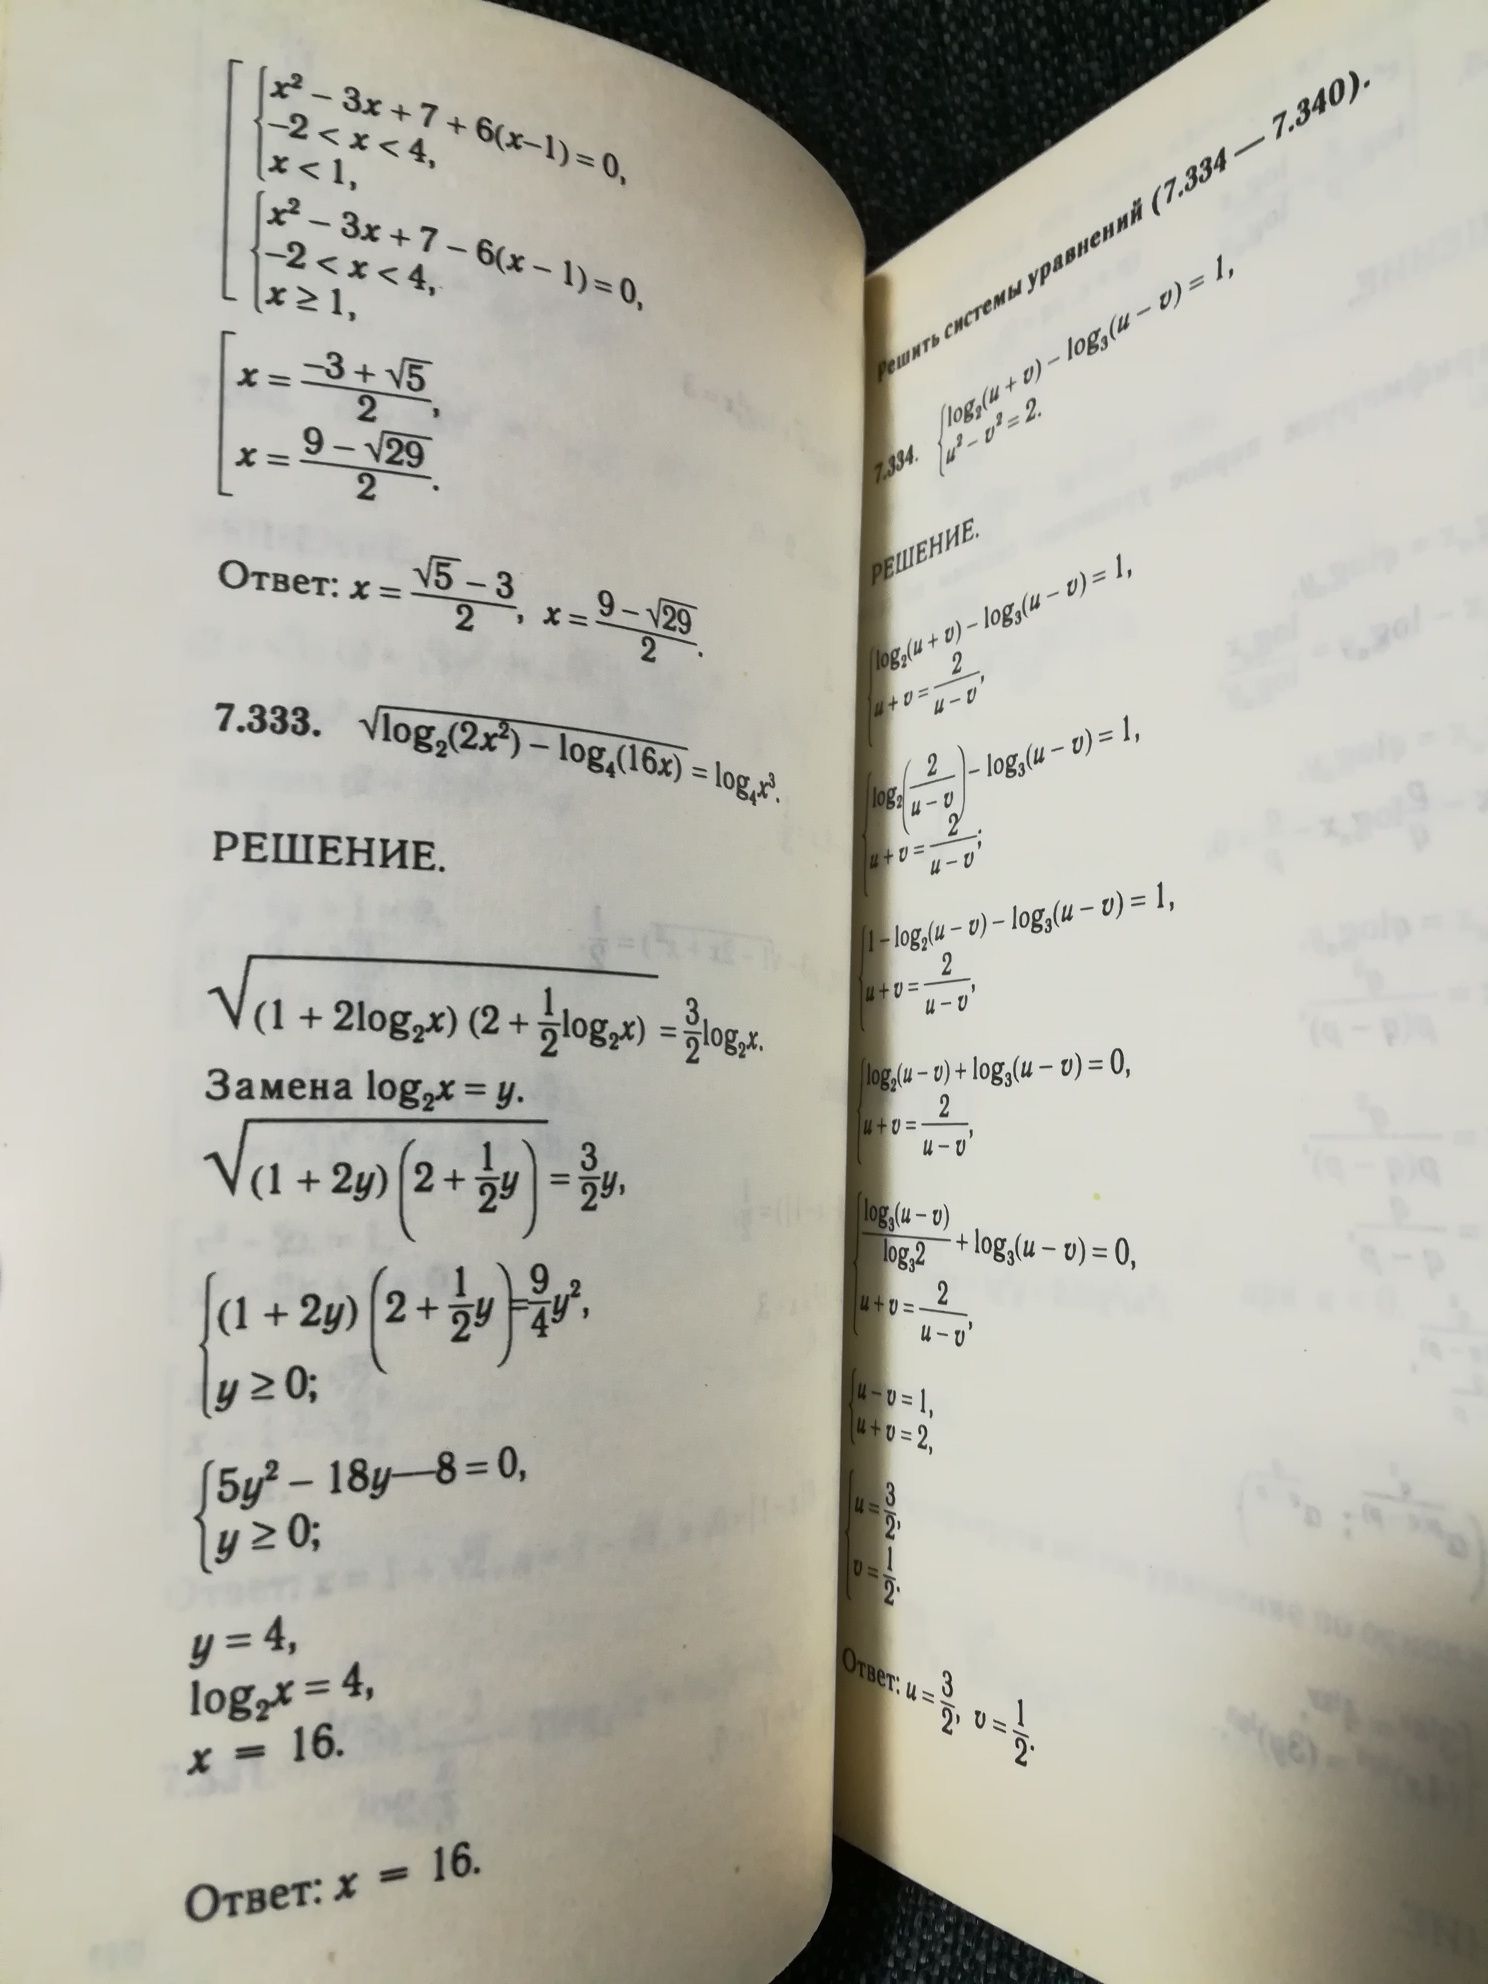 x² − 3x + 7 + 6(x−1) = 0,
−2 < x < 4,
x < 1,
x² − 3x + 7 − 6(x − 1) = 0,
−2 < x < 4,
x ≥ 1,
x = (−3 + √5)/2,
x = (9 − √29)/2.
Ответ: x = (√5 − 3)/2, x = (9 − √29)/2.
7.333. √log₂(2x²) − log₄(16x) = log₄x³.
РЕШЕНИЕ.
√(1 + 2log₂x) (2 + 1/2 log₂x) = 3/2 log₂x.
Замена log₂x = y.
√(1 + 2y) (2 + 1/2 y) = 3/2 y,
(1 + 2y) (2 + 1/2 y) = 9/4 y²,
y ≥ 0;
5y² − 18y—8 = 0,
y ≥ 0;
y = 4,
log₂x = 4,
x = 16.
Ответ: x = 16.
Решить системы уравнений (7.334 — 7.340).
7.334. log₂(u + v) − log₃(u − v) = 1,
u² − v² = 2.
РЕШЕНИЕ.
log₂(u + v) − log₃(u − v) = 1,
u + v = 2/(u − v);
log₂(2/(u − v)) − log₃(u − v) = 1,
u + v = 2/(u − v);
1 − log₂(u − v) − log₃(u − v) = 1,
u + v = 2/(u − v);
log₂(u − v) + log₃(u − v) = 0,
u + v = 2/(u − v);
log₃(u − v)/log₃2 + log₃(u − v) = 0,
u + v = 2/(u − v);
u − v = 1,
u + v = 2,
u = 3/2,
v = 1/2.
Ответ: u = 3/2, v = 1/2.